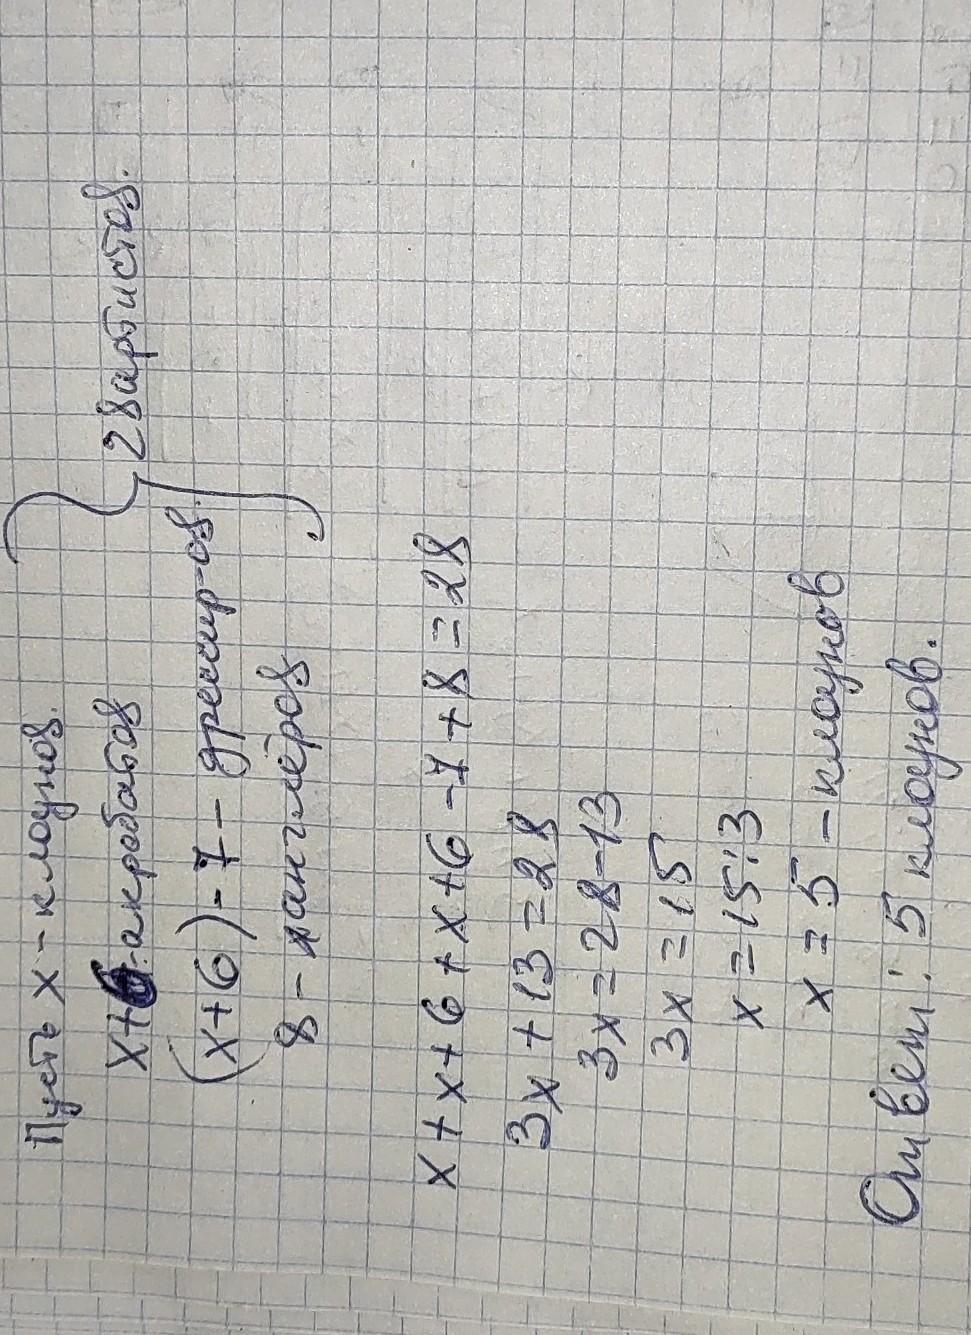 Пусть х - клоунов.
х+6 - акробатов
(х+6)-7 - дрессир-ов.
8 - жанглёров
} 28 артистов.
х + х + 6 + х + 6 - 7 + 8 = 28
3х + 13 = 28
3х = 28-13
3х = 15
х = 15:3
х = 5 - клоунов
Ответ: 5 клоунов.